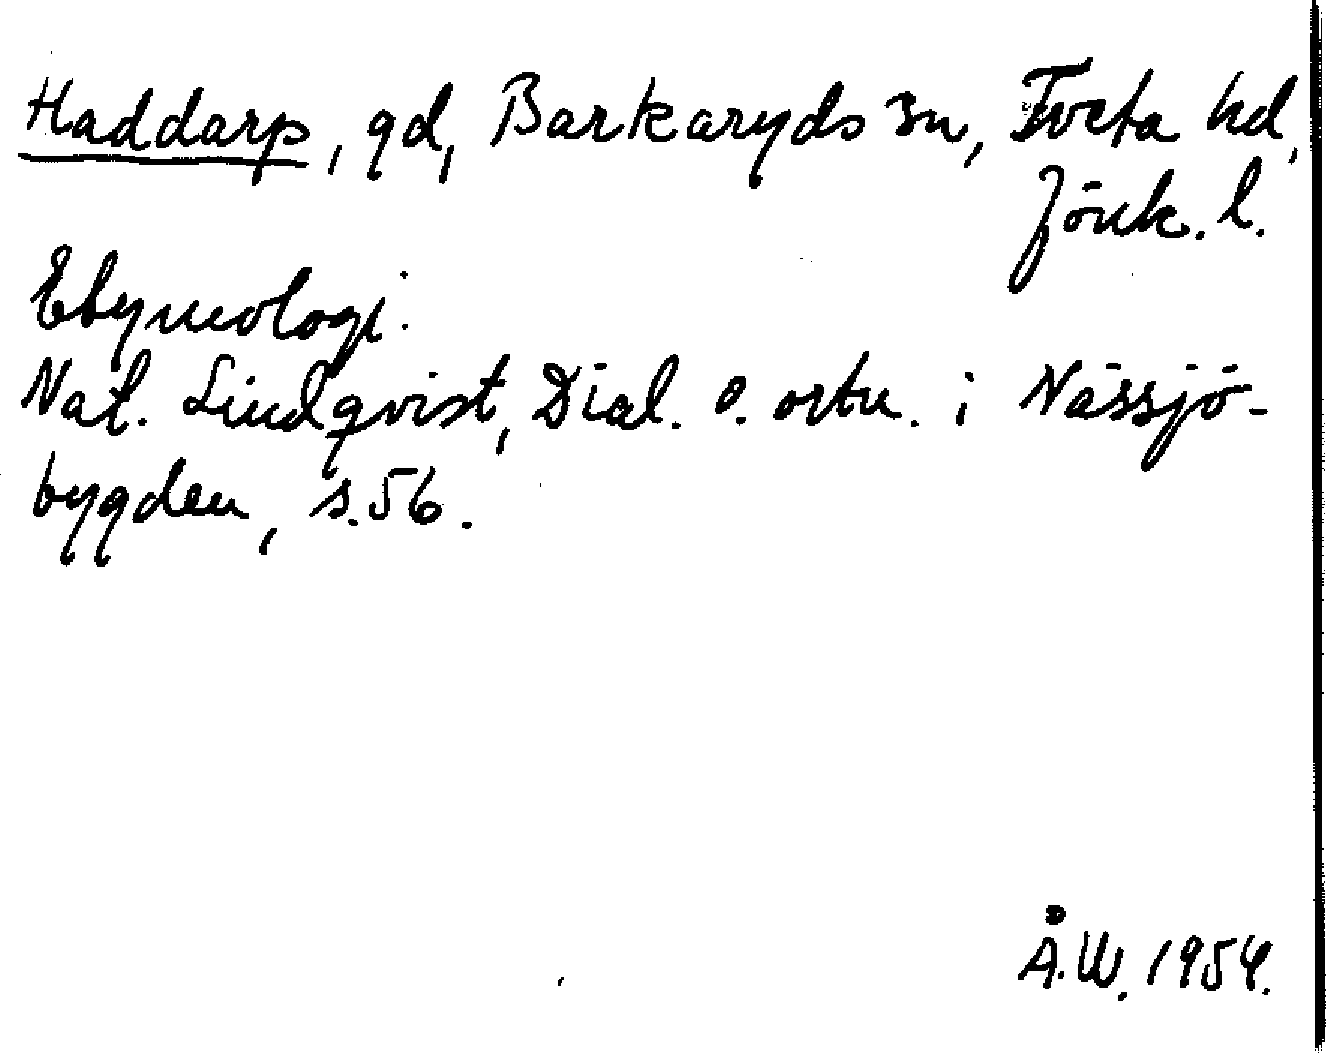 Haddarp, gd, Barkaryds sn, Tveta hd,
Jönk. l.
Etymologi.
Nat. Lindqvist, Dial. o. ortn. i Nässjö-
bygden, s. 56.
Å.W. 1954.